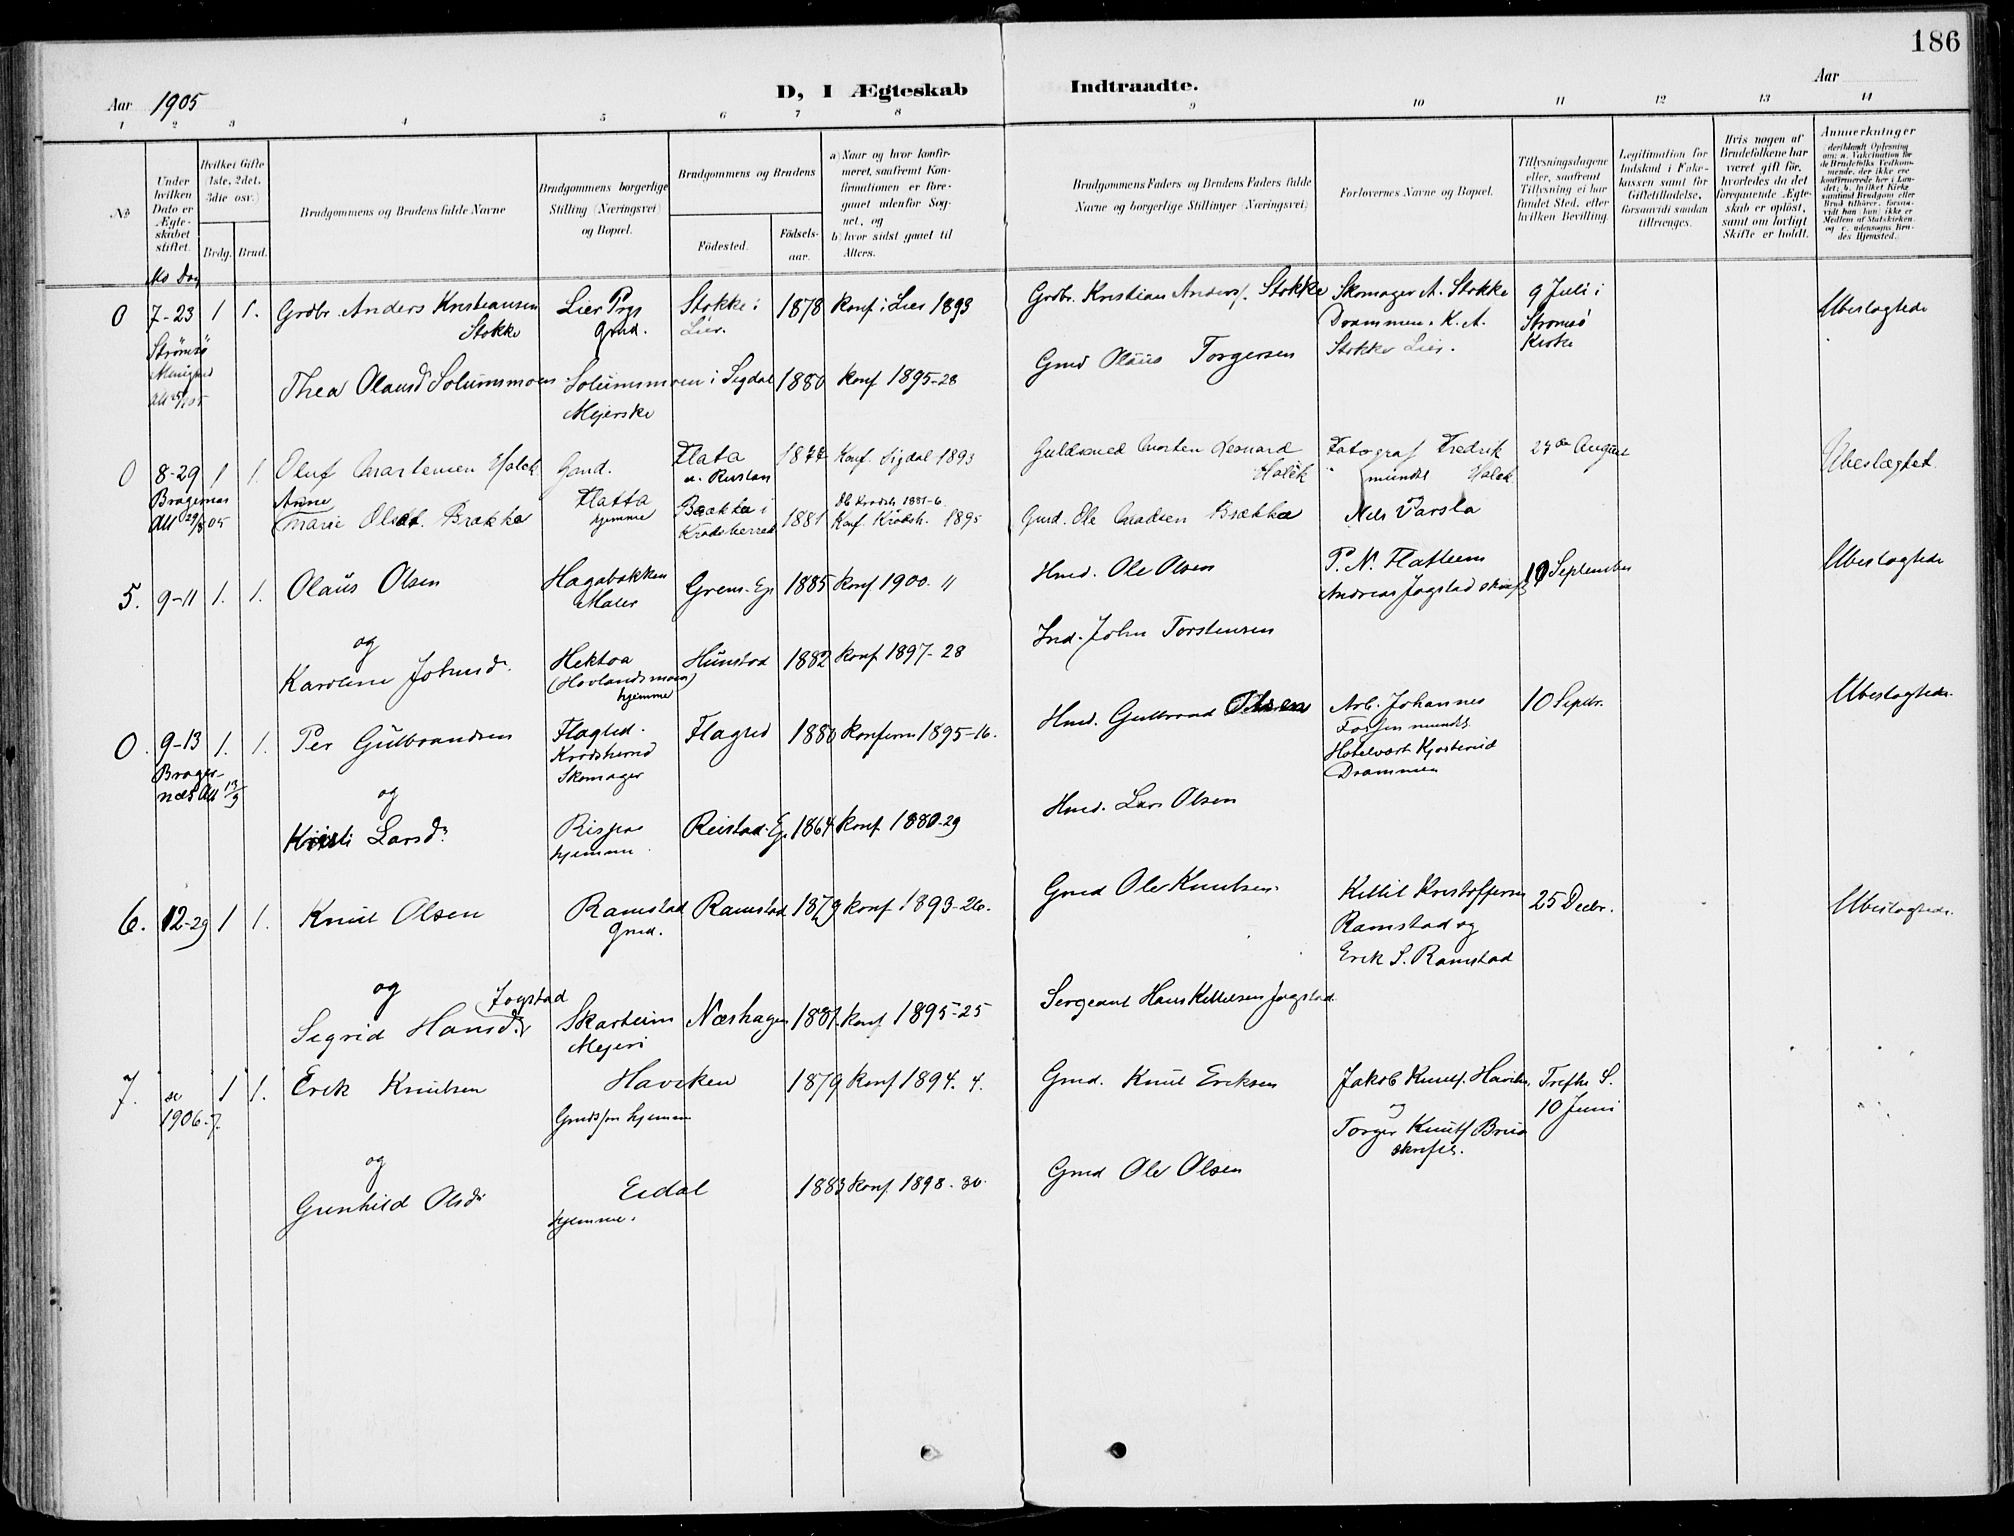 186
Aar 1905
D, I Ægteskab Indtraadte.
Aar
1 2 3 4 5 6 7 8 9 10 11 12 13 14
No
Under hvilken Dato er Ægteskabet stiftet.
Hvilket Gifte (1ste, 2det, 3die osv.)
Brdg. Brud.
Brudgommens og Brudens fulde Navne
Brudgommens borgerlige Stilling (Næringsvei) og Bopæl.
Brudgommens og Brudens
Fødested. Fødselsaar.
a) Naar og hvor konfirmeret, saafremt Konfirmationen er foregaaet udenfor Sognet, og
b) hvor sidst gaaet til Alters.
Brudgommens Faders og Brudens Faders fulde Navne og borgerlige Stillinger (Næringsvei)
Forlovernes Navne og Bopæl.
Tillysningsdagene eller, saafremt Tillysning ei har fundet Sted, efter hvilken Bevilling.
Legitimation for Indskud i Enkekassen samt for Giftetilladelse, forsaavidt saadan tiltrænges.
Hvis nogen af Brudefolkene har været gift før, hvorledes da det foregaaende Ægteskab er opløst, samt om lovligt Skifte er holdt.
Anmerkninger
Mo Dag
0 7-23 1 1. Grdbr. Anders Kristiansen Stokke
Lier Prgj Gmd.
Stokke i Lier.
1878 Konf. i Lier 1893
Grdbr. Kristian Anders. Stokke
Skomager A. Stokke Drammen. K. A. Stokke Lier.
9 Juli i Strømsø Kirke
Ubeslægtede
Strømsø Menighed
Thea Olausd Solumsmoen
Solumsmoen i Sigdal
Mejerske
1880 Konf 1895-28
Gmd Olaus Torgersen
0 8-29 1 1. Oluf Martensen Holck
Gmd. Flatta
Flata u. Rustan
1877 Konf. Sigdal 1893
Guldsmed Morten Leonard Holck
Fotograf Fredrik Holck
27de August
Ubeslægtet
Bragernes Att 29/8 05
Anne Marie Olsdt. Brække
hjemme
Brække i Krødsherred
1881 Konf Krødsh. 1895
Gmd. Ole Madsen Brække
Nels Varsla
5. 9-11 1. 1. Olaus Olsen
Hagabakken Maler
Grens. Eje 1885 Konf 1900. 11
Hmd. Ole Olsen
P. N. Flatteen
Andreas Jogstad
10 September
Ubeslægtede
og
Karoline Johnsd.
Hektoa (Hovlandsmoen) hjemme
Hunstad 1882 Konf 1897-28
Ind. John Torstensen
0. 9-13 1. 1. Per Gulbrandsen
Flagted. Krødsherred Skomager
Flagted 1880 Konferm 1895-16.
Hmd. Gulbrand Olsen
Arb. Johannes
Hotelvært Kjøsterud Drammen
10 Septbr.
Ubeslægtede.
Bragernæs Att 13/9
og
Kristi Larsd.
hjemme
Reistad. Eje 1864 Konf 1880-29
Hmd. Lars Olsen
6. 12-29 1 1. Knut Olsen
Ramstad Gmd.
Ramstad 1879 Konf 1893-26.
Gmd Ole Knutsen.
Kittil Kristoffersen Ramstad og Erik S. Ramstad
25 Decbr.
Ubeslægtede.
og
Sigrid Hansd. Jogstad
Skarteim Mejeri
Næshagen 1881. Konf 1895-25
Sergeant Hans Kittilsen Jogstad
7. se 1906.7. 1 1. Erik Knutsen
Haviken
Gmdssøn hjemme
1879 Konf 1894. 4.
Gmd. Knut Eriksen
Jakob Knuts. Haviken og
Torger Knuts
skriftl.
Trefh. S. 10 Juni
og
Gunhild Olsd.
Eidal
hjemme.
1883 Konf 1898. 30.
Gmd Ole Olsen